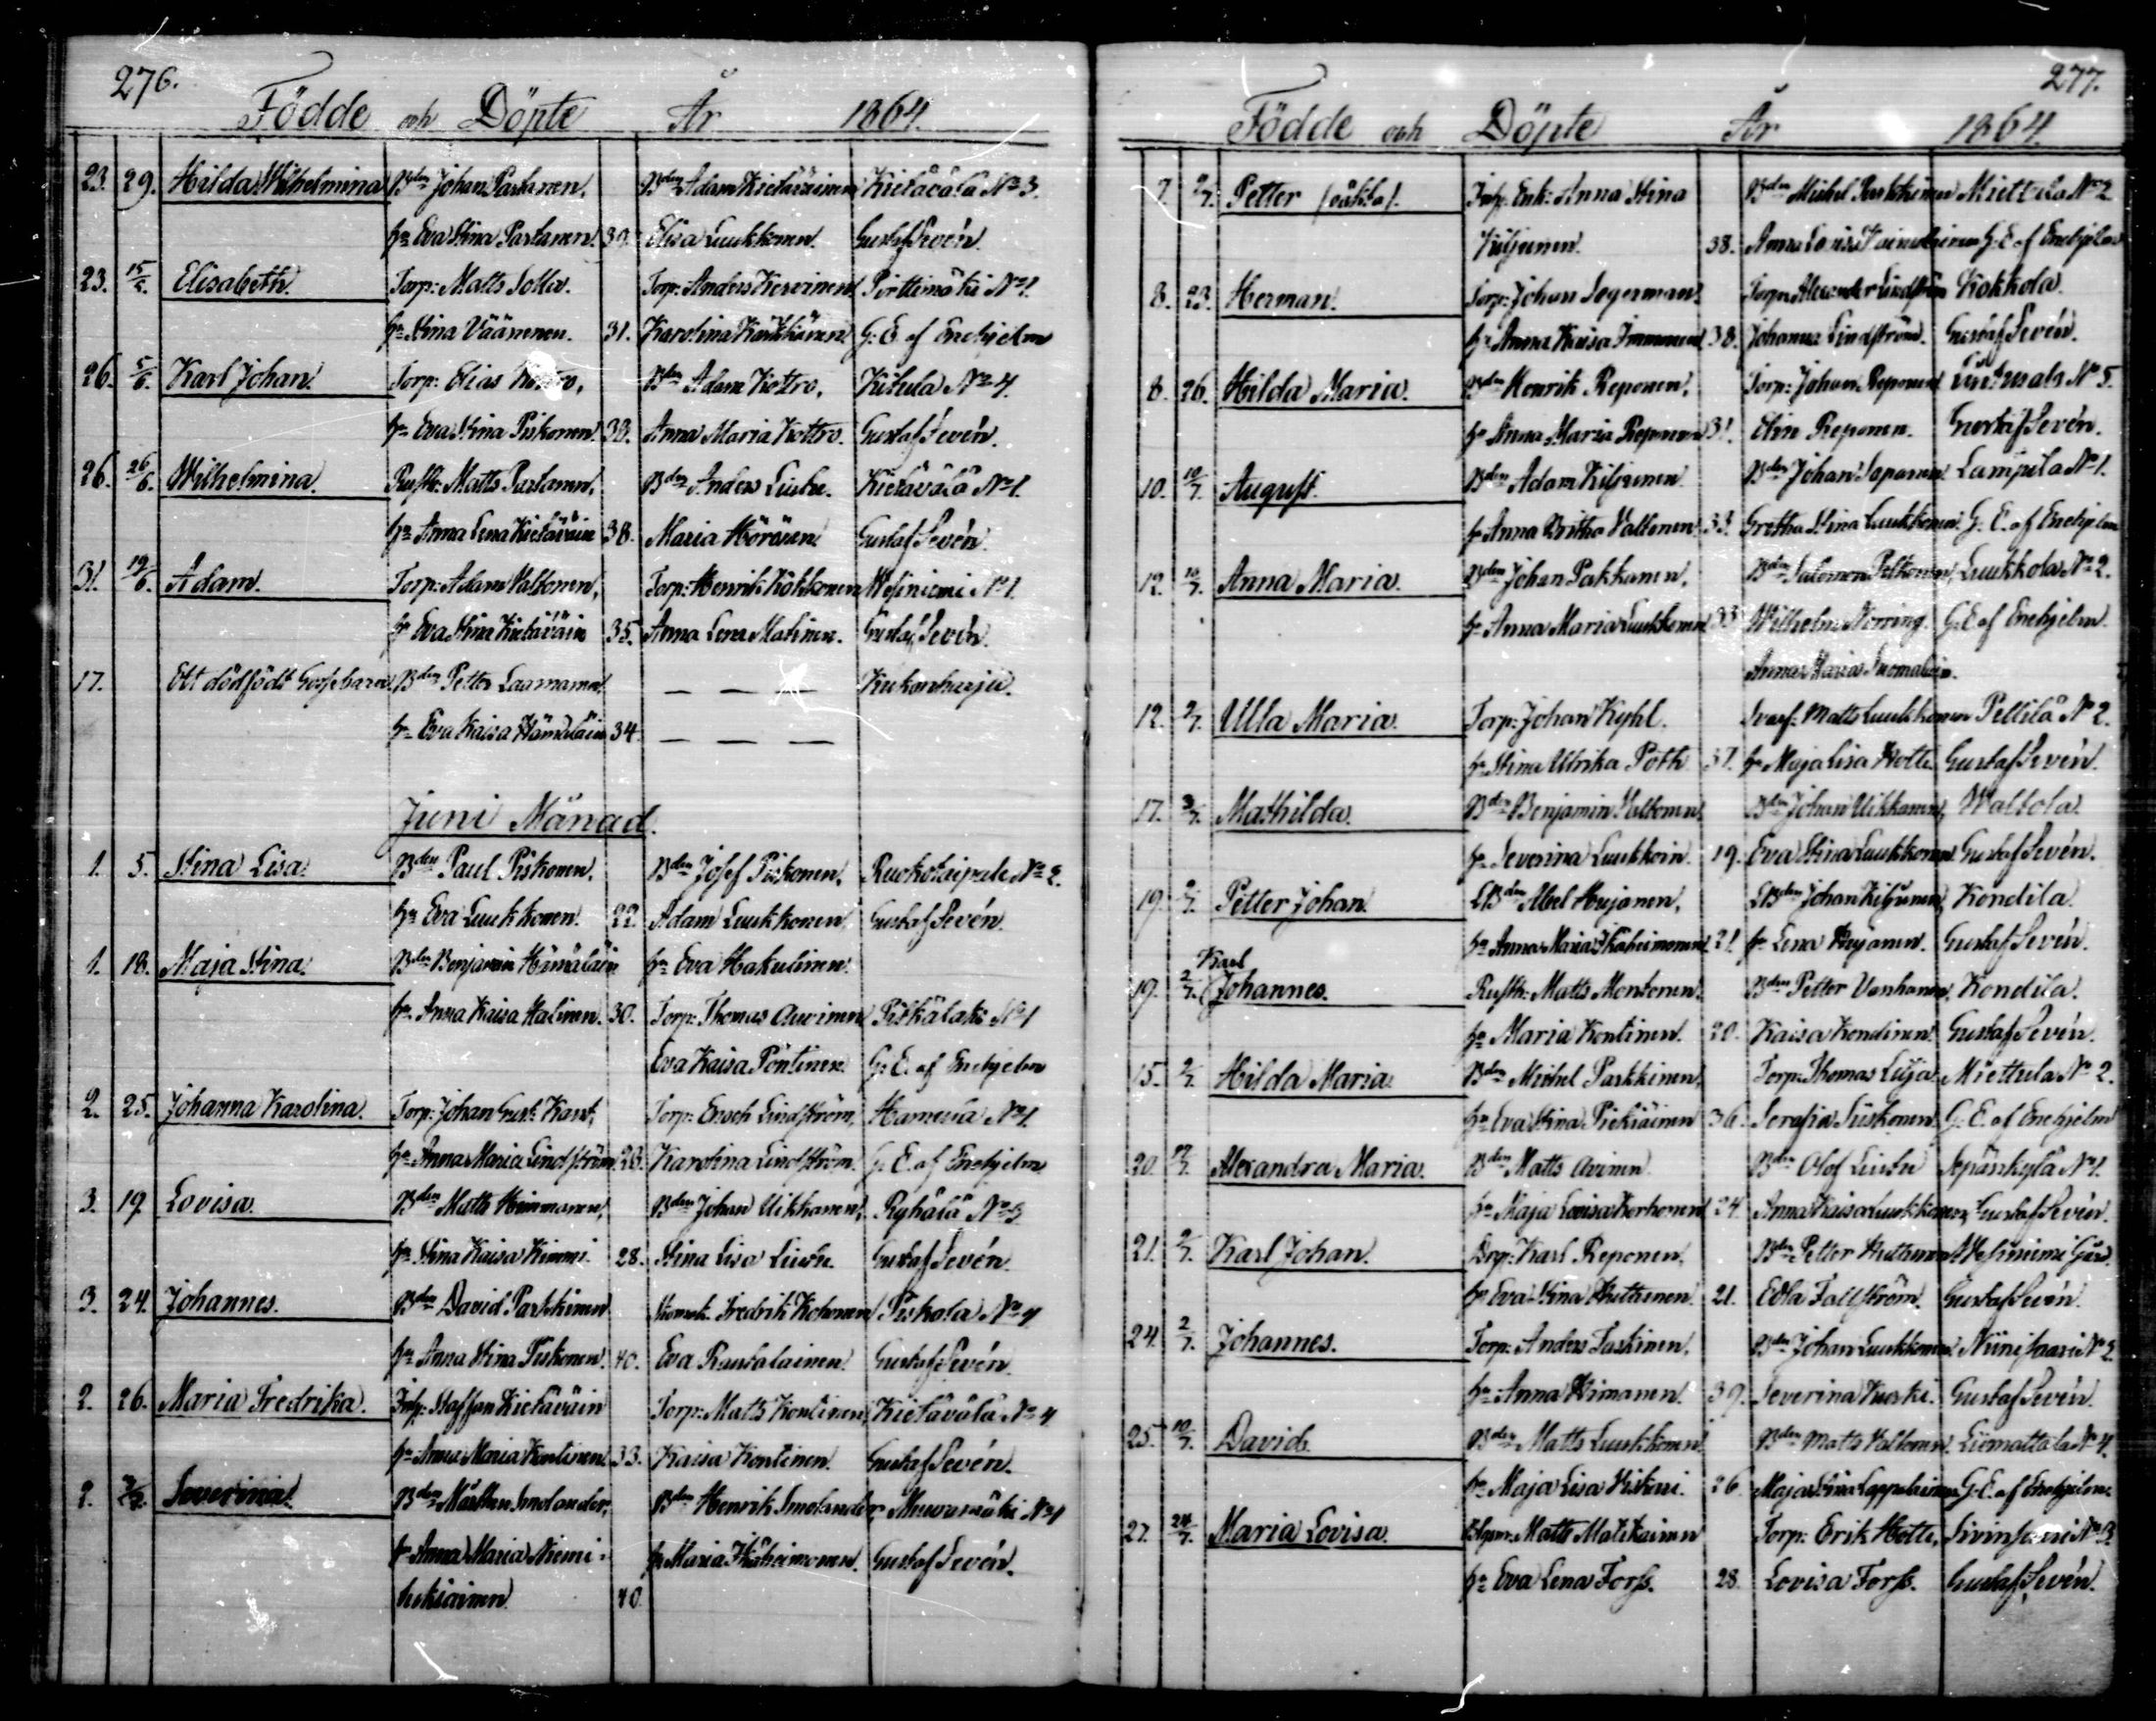 276.
Födde och Döpte År 1864.
23. 29. Hilda Wilhelmina Bden Johan Partanen, Bden Adam Kietäväinen Kietävälä No 3.
hu Eva Stina Partanen 39. Elisa Luukkonen. Gustaf Sevén.
23. 15/6. Elisabeth. Torp: Matts Torp: Anders Kervinen Pirttimäki No 1.
hu Stina Väänänen. 31. Karolina G: E. af Enehjelm
26. 5/6. Karl Johan. Torp: Elias Kottro, Bden Adam Kottro, Kitula No 4.
hu Eva Stina Piskonen. 38. Anna Maria Kottro. Gustaf Sevén.
26. 26/6. Wilhelmina. Rusth: Matts Partanen, Bden Anders Kietävälä No 1.
hu Anna Lena Kietäväin 38. Maria Gustaf Sevén.
31. 19/6. Adam. Torp: Adam Valtonen, Torp: Henrik Kokkonen Wesiniemi No 1.
hu Eva Stina Kietäväin 35. Anna Lena Malinen. Gustaf Sevén.
17. Ett dödfödt Gossebarn. Bden Petter Laamanen — — — Kukonharju.
hu Eva Kaisa Hämäläin 34. — — —
Juni Månad.
1. 5. Stina Lisa. Bden Paul Piskonen, Bden Josef Piskonen, Ruokotaipale No 2.
hu Eva Luukkonen. 22. Adam Luukkonen. Gustaf Sevén.
1. 18. Maja Stina. Bden Benjamin Hämäläin hu Eva Hakulinen.
hu Anna Kaisa Halinen. 30. Torp: Thomas Auvinen Pitkälaks No 1
Eva Kaisa Pöntinen. G: E. af Enehjelm
2. 25. Johanna Karolina. Torp: Johan Gust: Kant, Torp: Enoch Lindström, Hamula No 1.
hu Anna Maria Lindström 28. Karolina Lindström. G: E. af Enehjelm
3. 19. Lovisa. Bden Matts Himmanen, Bden Johan Uikkanen, Ryhälä No 3
hu Stina Kaisa Kimmi. 28. Stina Lisa Gustaf Sevén.
3. 24. Johannes. Bden David Parkkinen Fredrik Kohonen Piskola No 4
hu Anna Stina Piskonen. 40. Eva Rautalainen. Gustaf Sevén.
2. 26. Maria Fredrika. Inh: Staffan Kietäväin Torp: Matts Kontinen, Kietävälä No 4
hu Anna Maria Kontinen. 33. Kaisa Kontinen. Gustaf Sevén.
2. Severina. Bden Mårten Smolander, Bden Henrik Smolander Muuramäki No 1
hu Anna Maria Niemi- hu Maria Ikäheimonen. Gustaf Sevén.
hukiainen 40
277.
Födde och Döpte År 1864.
7. 2/7. Petter (oäkta). Inh: Enk: Anna Stina Bden Mickel Parkkinen Miettula No 2
Kiljunen. 38. Anna Lovisa G: E af Enehjelm
8. 23. Herman. Torp: Johan Segerman, Torp: Alexander Lindström Kokkola.
hu Anna Kaisa Immonen 38. Johanna Lindström. Gustaf Sevén.
8. 26. Hilda Maria. Bden Henrik Reponen, Torp: Johan Reponen No 5.
hu Anna Maria Reponen 31. Elin Reponen. Gustaf Sevén.
10. 10/7. August. Bden Adam Kiljunen Bden Johan Lampila No 1.
hu Anna Britha Valtonen 33. Gretha Stina Luukkonen G: E. af Enehjelm
12. 10/7. Anna Maria. Bden Johan Pakkanen, Bden Salomon Pelkonen, Luukkola No 2.
hu Anna Maria Luukkonen 33 Wilhelm Norring. G: E af Enehjelm.
Anna Maria Suomalain.
12. 2/7. Ulla Maria. Torp: Johan Kyhl. Matts Luukkonen Pellilä No 2.
hu Stina Ulrika Poth 37. hu Maja Lisa Hotti. Gustaf Sevén.
17. 3/7. Mathilda. Bden Benjamin Valtonen, Bden Johan Uikkanen, Waltola.
hu Severina Luukkoin. 19. Eva Stina Luukkonen. Gustaf Sevén.
19. 2/7. Petter Johan. LBden Abel Hujanen, LBden Johan Kiljunen, Kondila.
hu Anna Maria Ikäheimonen 21. hu Lena Hujanen. Gustaf Sevén.
Karl
19. 2/7. Johannes. Rusth: Matts Montonen, Bden Petter Vanhanen, Kondila.
hu Maria Kontinen. 20. Kaisa Kondinen. Gustaf Sevén.
15. 2/7. Hilda Maria. Bden Mickel Parkkinen, Torp: Thomas Miettula No 2.
hu Eva Stina 36. Serafia Piiskonen. G: E. af Enehjelm
20. 17/7. Alexandra Maria. Bden Matts Avinen Bden Olof Sepänkylä No 1.
hu Maja Lovisa Korhonen 24. Anna Kaisa Luukkonen, Gustaf Sevén.
21. 2/7. Karl Johan. Drg: Karl Reponen, Bden Petter Huttunen Wesiniemi Går.
hu Eva Stina Huttunen. 21. Edla Fallström. Gustaf Sevén.
24. 2/7. Johannes. Torp: Anders Taskinen, Bden Johan Luukkonen Niinisaari No 2
hu Anna Himanen. 39. Severina Kuoski. Gustaf Sevén.
25. 10/7. David. Bden Matts Luukkonen Bden Matts Valtonen. Liimattala No 4.
hu Maja Lisa Kiskari. 26. Maja Stina Lappalainen G: E. af Enehjelm.
27. 24/7. Maria Lovisa. Matts Matikainen Torp: Erik Hotti, No 3.
hu Eva Lena Forss. 28. Lovisa Forss. Gustaf Sevén.